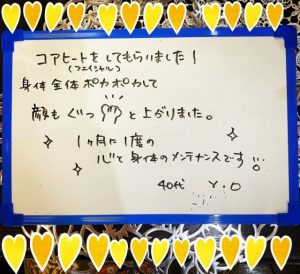 コアヒートをしてもらいました！
(フェイシャル)
身体全体ポカポカして
顔もぐっと上がりました。
1ヶ月に1度の
心と身体のメンテナンスです!!
40代 Y.O